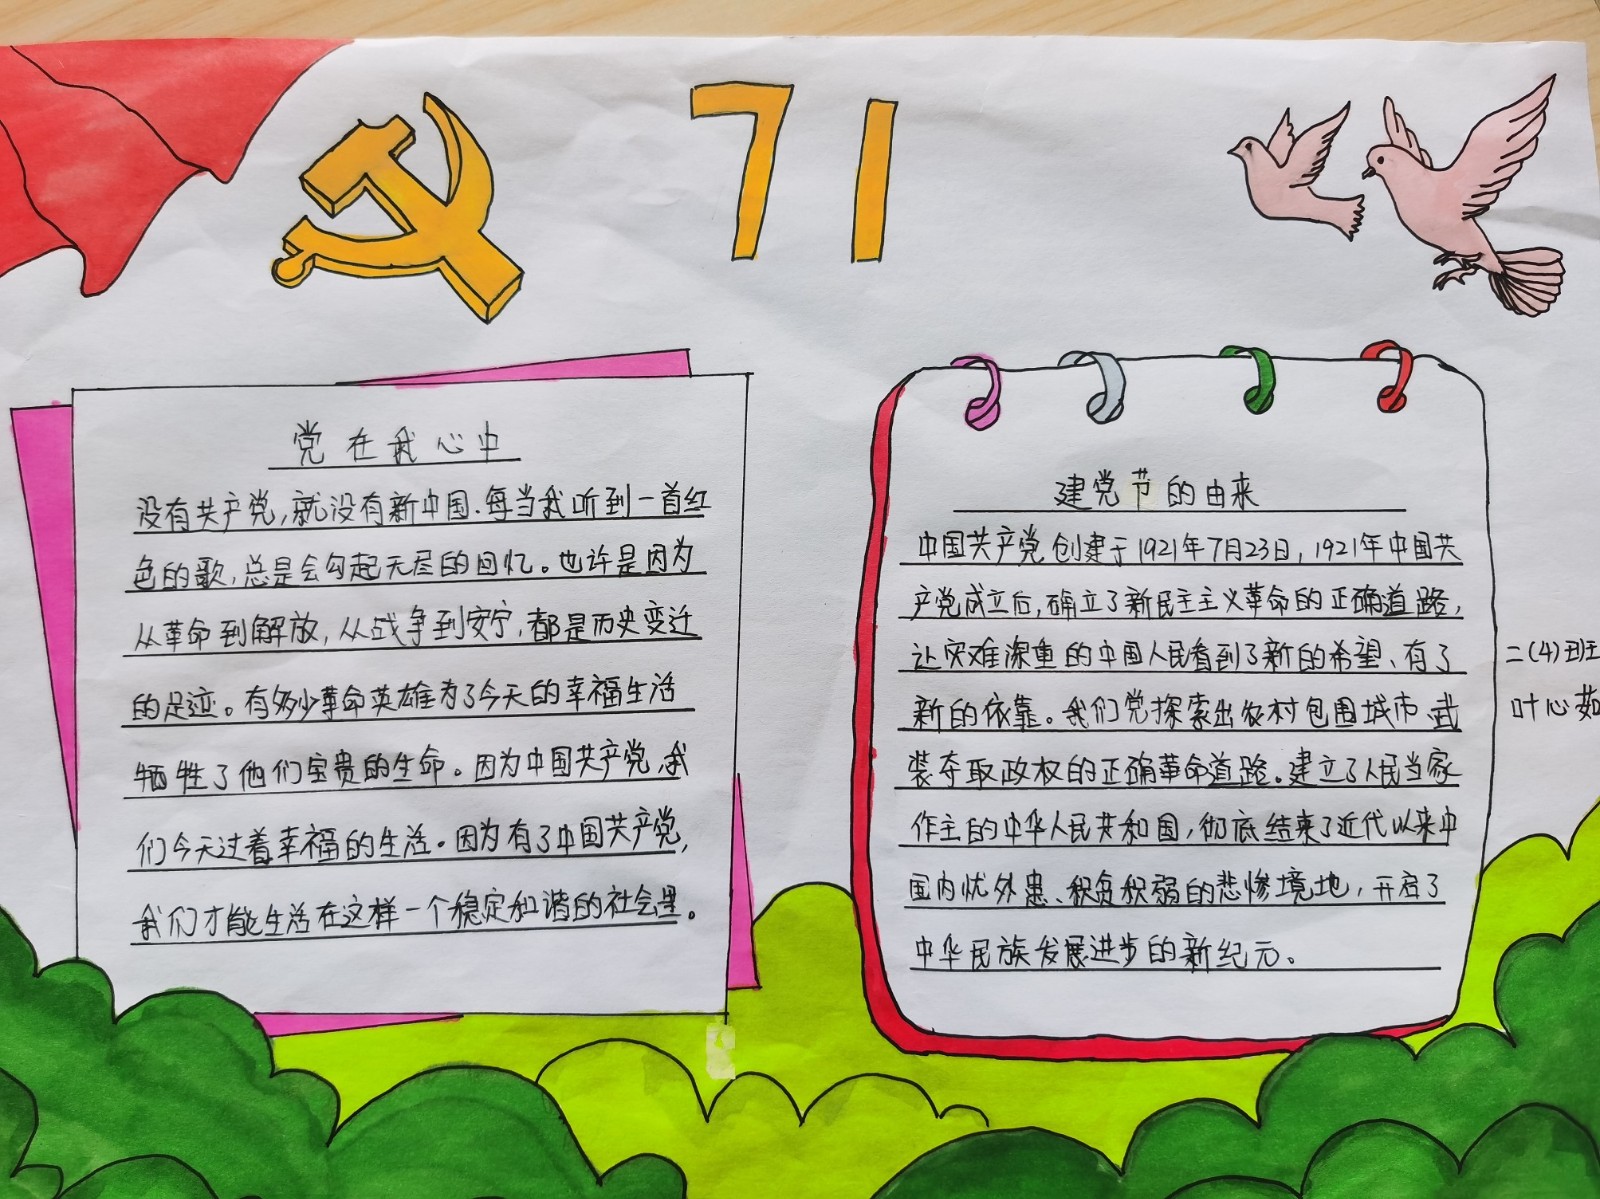 71
党在我心中
没有共产党,就没有新中国.每当我听到一首红
色的歌,总是会勾起无尽的回忆。也许是因为
从革命到解放,从战争到安宁,都是历史变迁
的足迹。有多少革命英雄为了今天的幸福生活
牺牲了他们宝贵的生命。因为中国共产党,我
们今天过着幸福的生活。因为有了中国共产党,
我们才能生活在这样一个稳定和谐的社会里。
建党节的由来
中国共产党创建于1921年7月23日,1921年中国共
产党成立后,确立了新民主主义革命的正确道路,
让灾难深重的中国人民看到了新的希望、有了
新的依靠。我们党探索出农村包围城市、武
装夺取政权的正确革命道路。建立了人民当家
作主的中华人民共和国,彻底结束了近代以来中
国内忧外患、积贫积弱的悲惨境地,开启了
中华民族发展进步的新纪元。
二(4)班
叶心茹